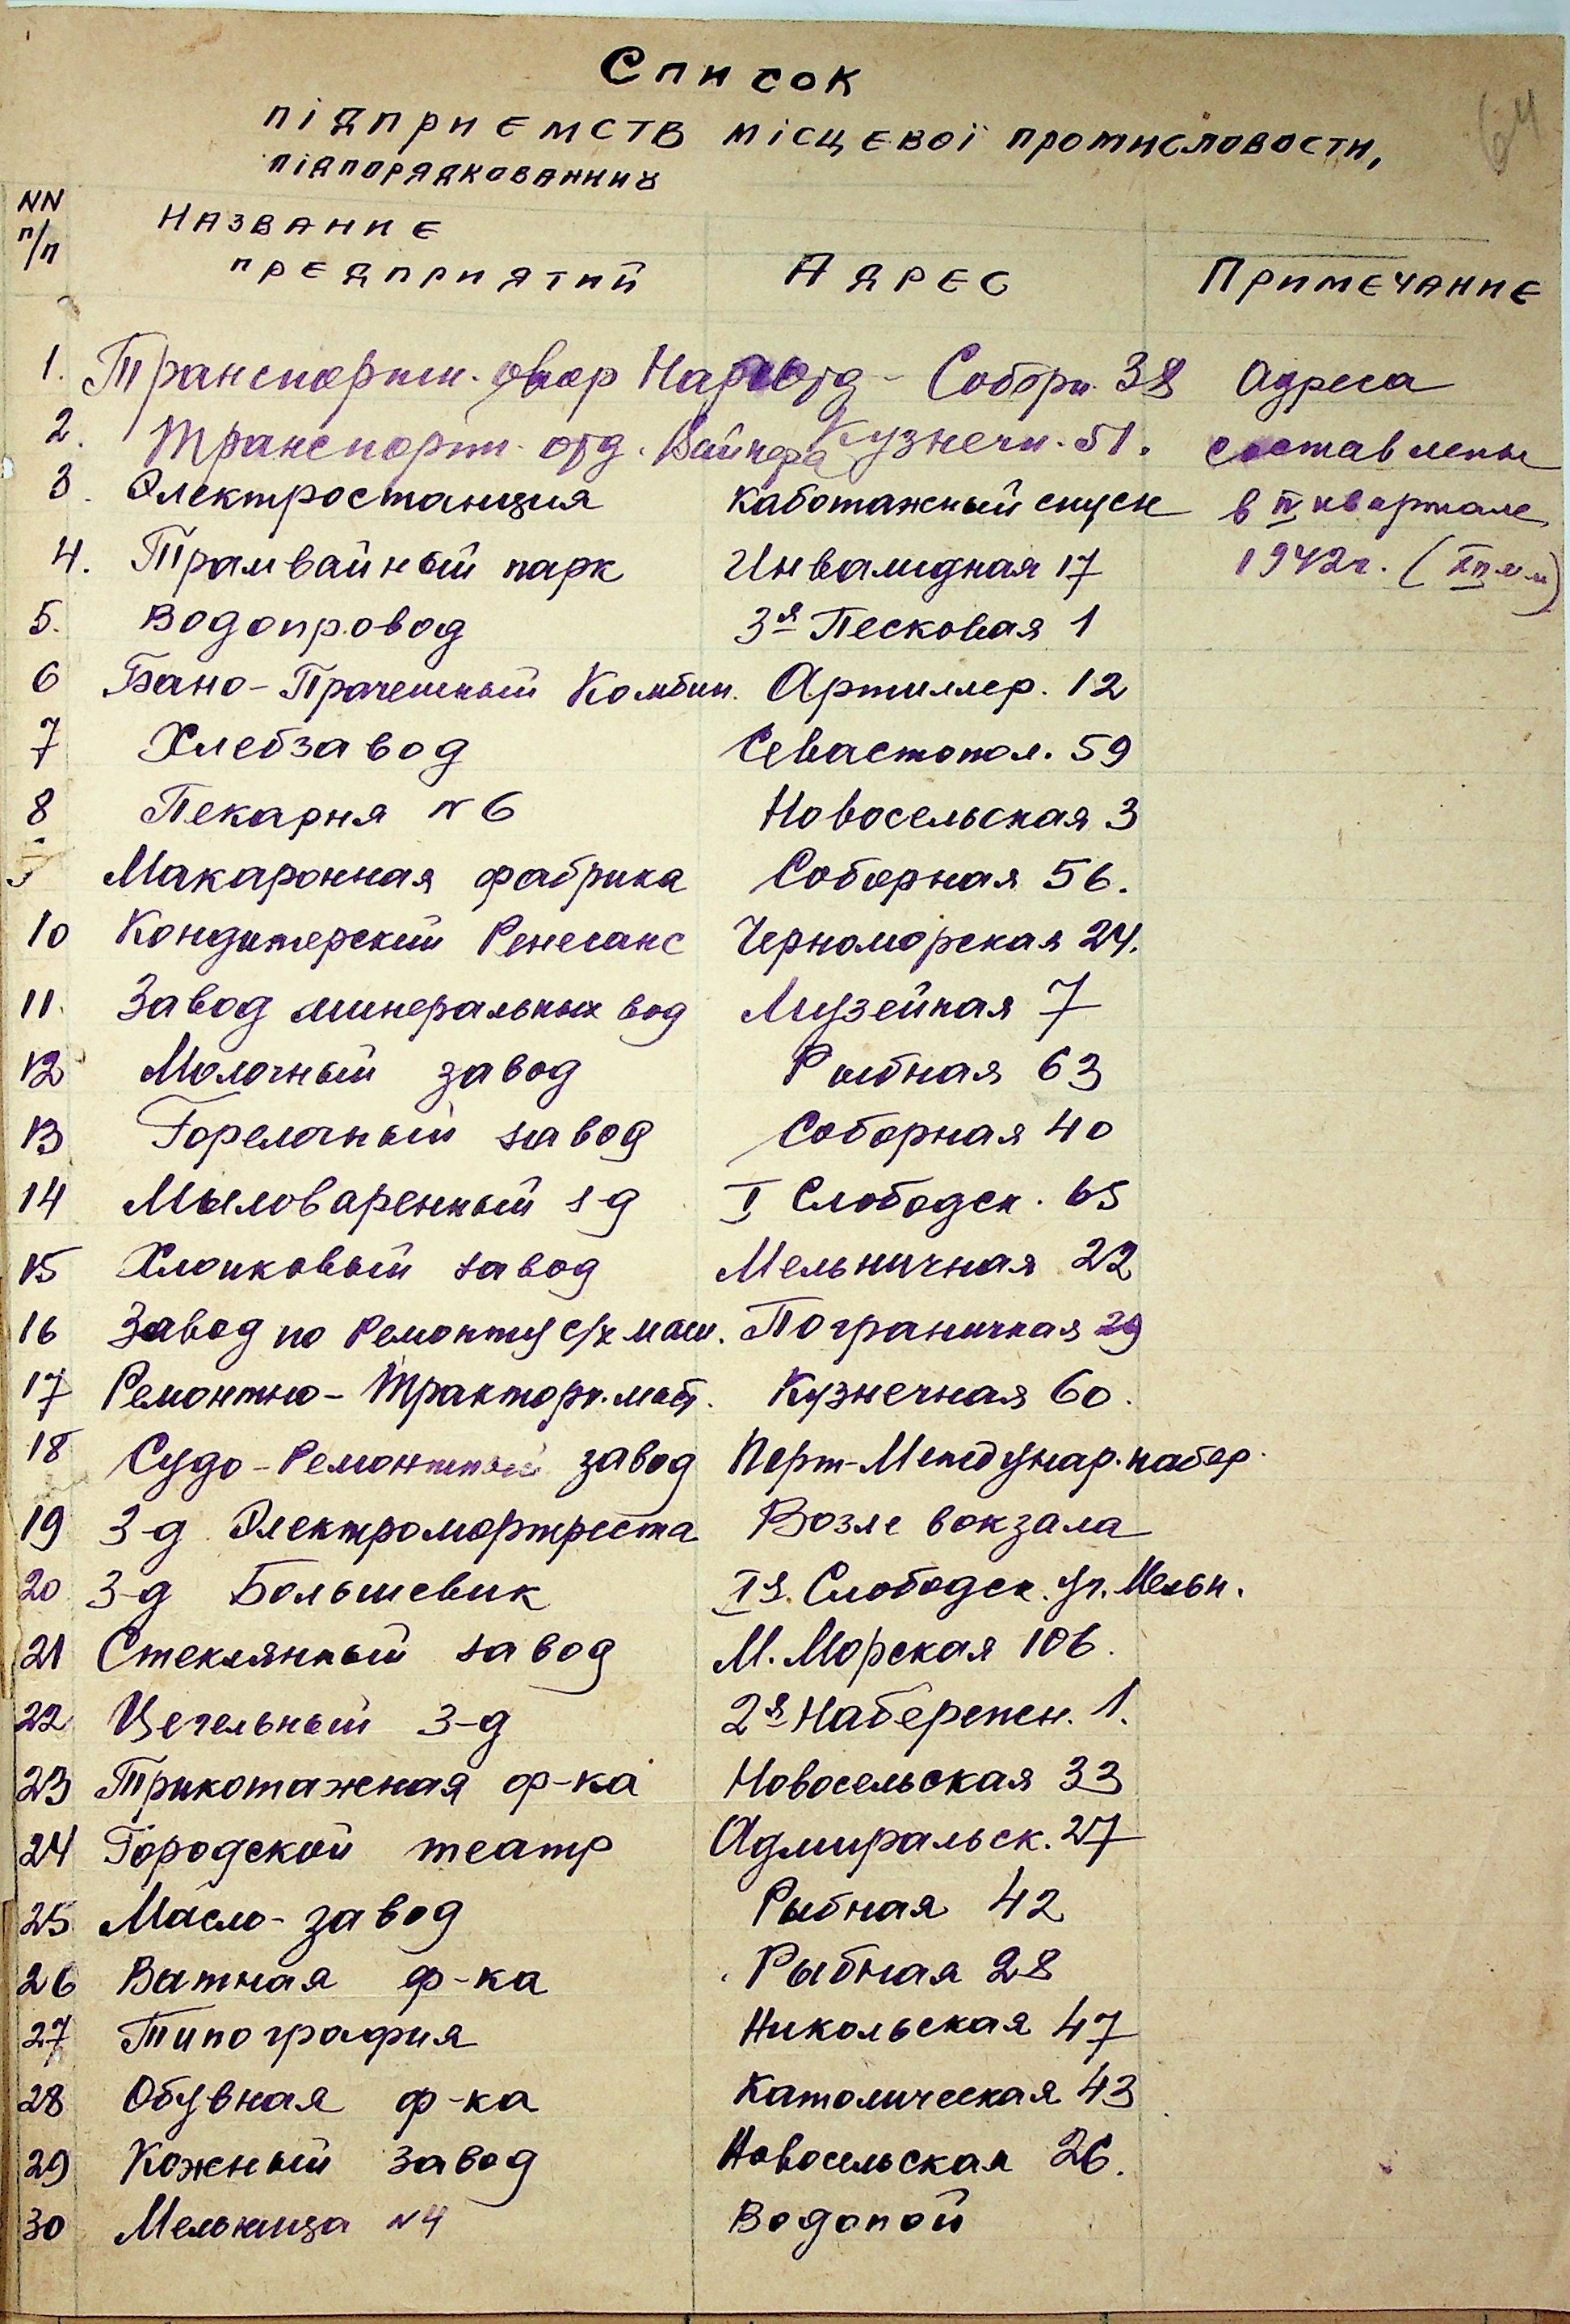 Список
підприємств місцевої промисловости,
підпорядкованних
64
NN п/п Название предприятий Адрес Примечание
1. Транспортн. двор Собори. 38 Адреса
2. Транспорт. отд. Вайнера Кузнечн. 51. составлены
3. Электростанция Каботажный спуск в IV квартале
4. Трамвайный парк Инвалидная 17 1942 г.
5. Водопровод 3я Песковая 1
6 Бано-Прачешный Комбин. Артиллер. 12
7 Хлебзавод Севастопол. 59
8 Пекарня N 6 Новосельская 3
Макаронная фабрика Соборная 56.
10 Кондитерский Ренесанс Черноморская 24.
11. Завод минеральных вод Музейная 7
12 Молочный завод Рыбная 63
13 Горелочный завод Соборная 40
14 Мыловаренный з-д I Слободск. 65
15 Хлопковый завод Мельничная 22
16 Завод по Ремонту с/х маш. Пограничная 29
17 Ремонтно-Тракторн. маст. Кузнечная 60.
18 Судо-Ремонтный завод Порт-Междунар. набер.
19 З-д Электромортреста Возле вокзала
20 З-д Большевик I я. Слободск. уг. Мельн.
21 Стеклянный завод М. Морская 106.
22 Цегельный З-д 2я Набережн. 1.
23 Трикотажная ф-ка Новосельская 33
24 Городской театр Адмиральск. 27
25 Масло-завод Рыбная 42
26 Ватная ф-ка Рыбная 28
27 Типография Никольская 47
28 Обувная ф-ка Католическая 43
29 Кожный завод Новосельская 26.
30 Мельница N 4 Водопой